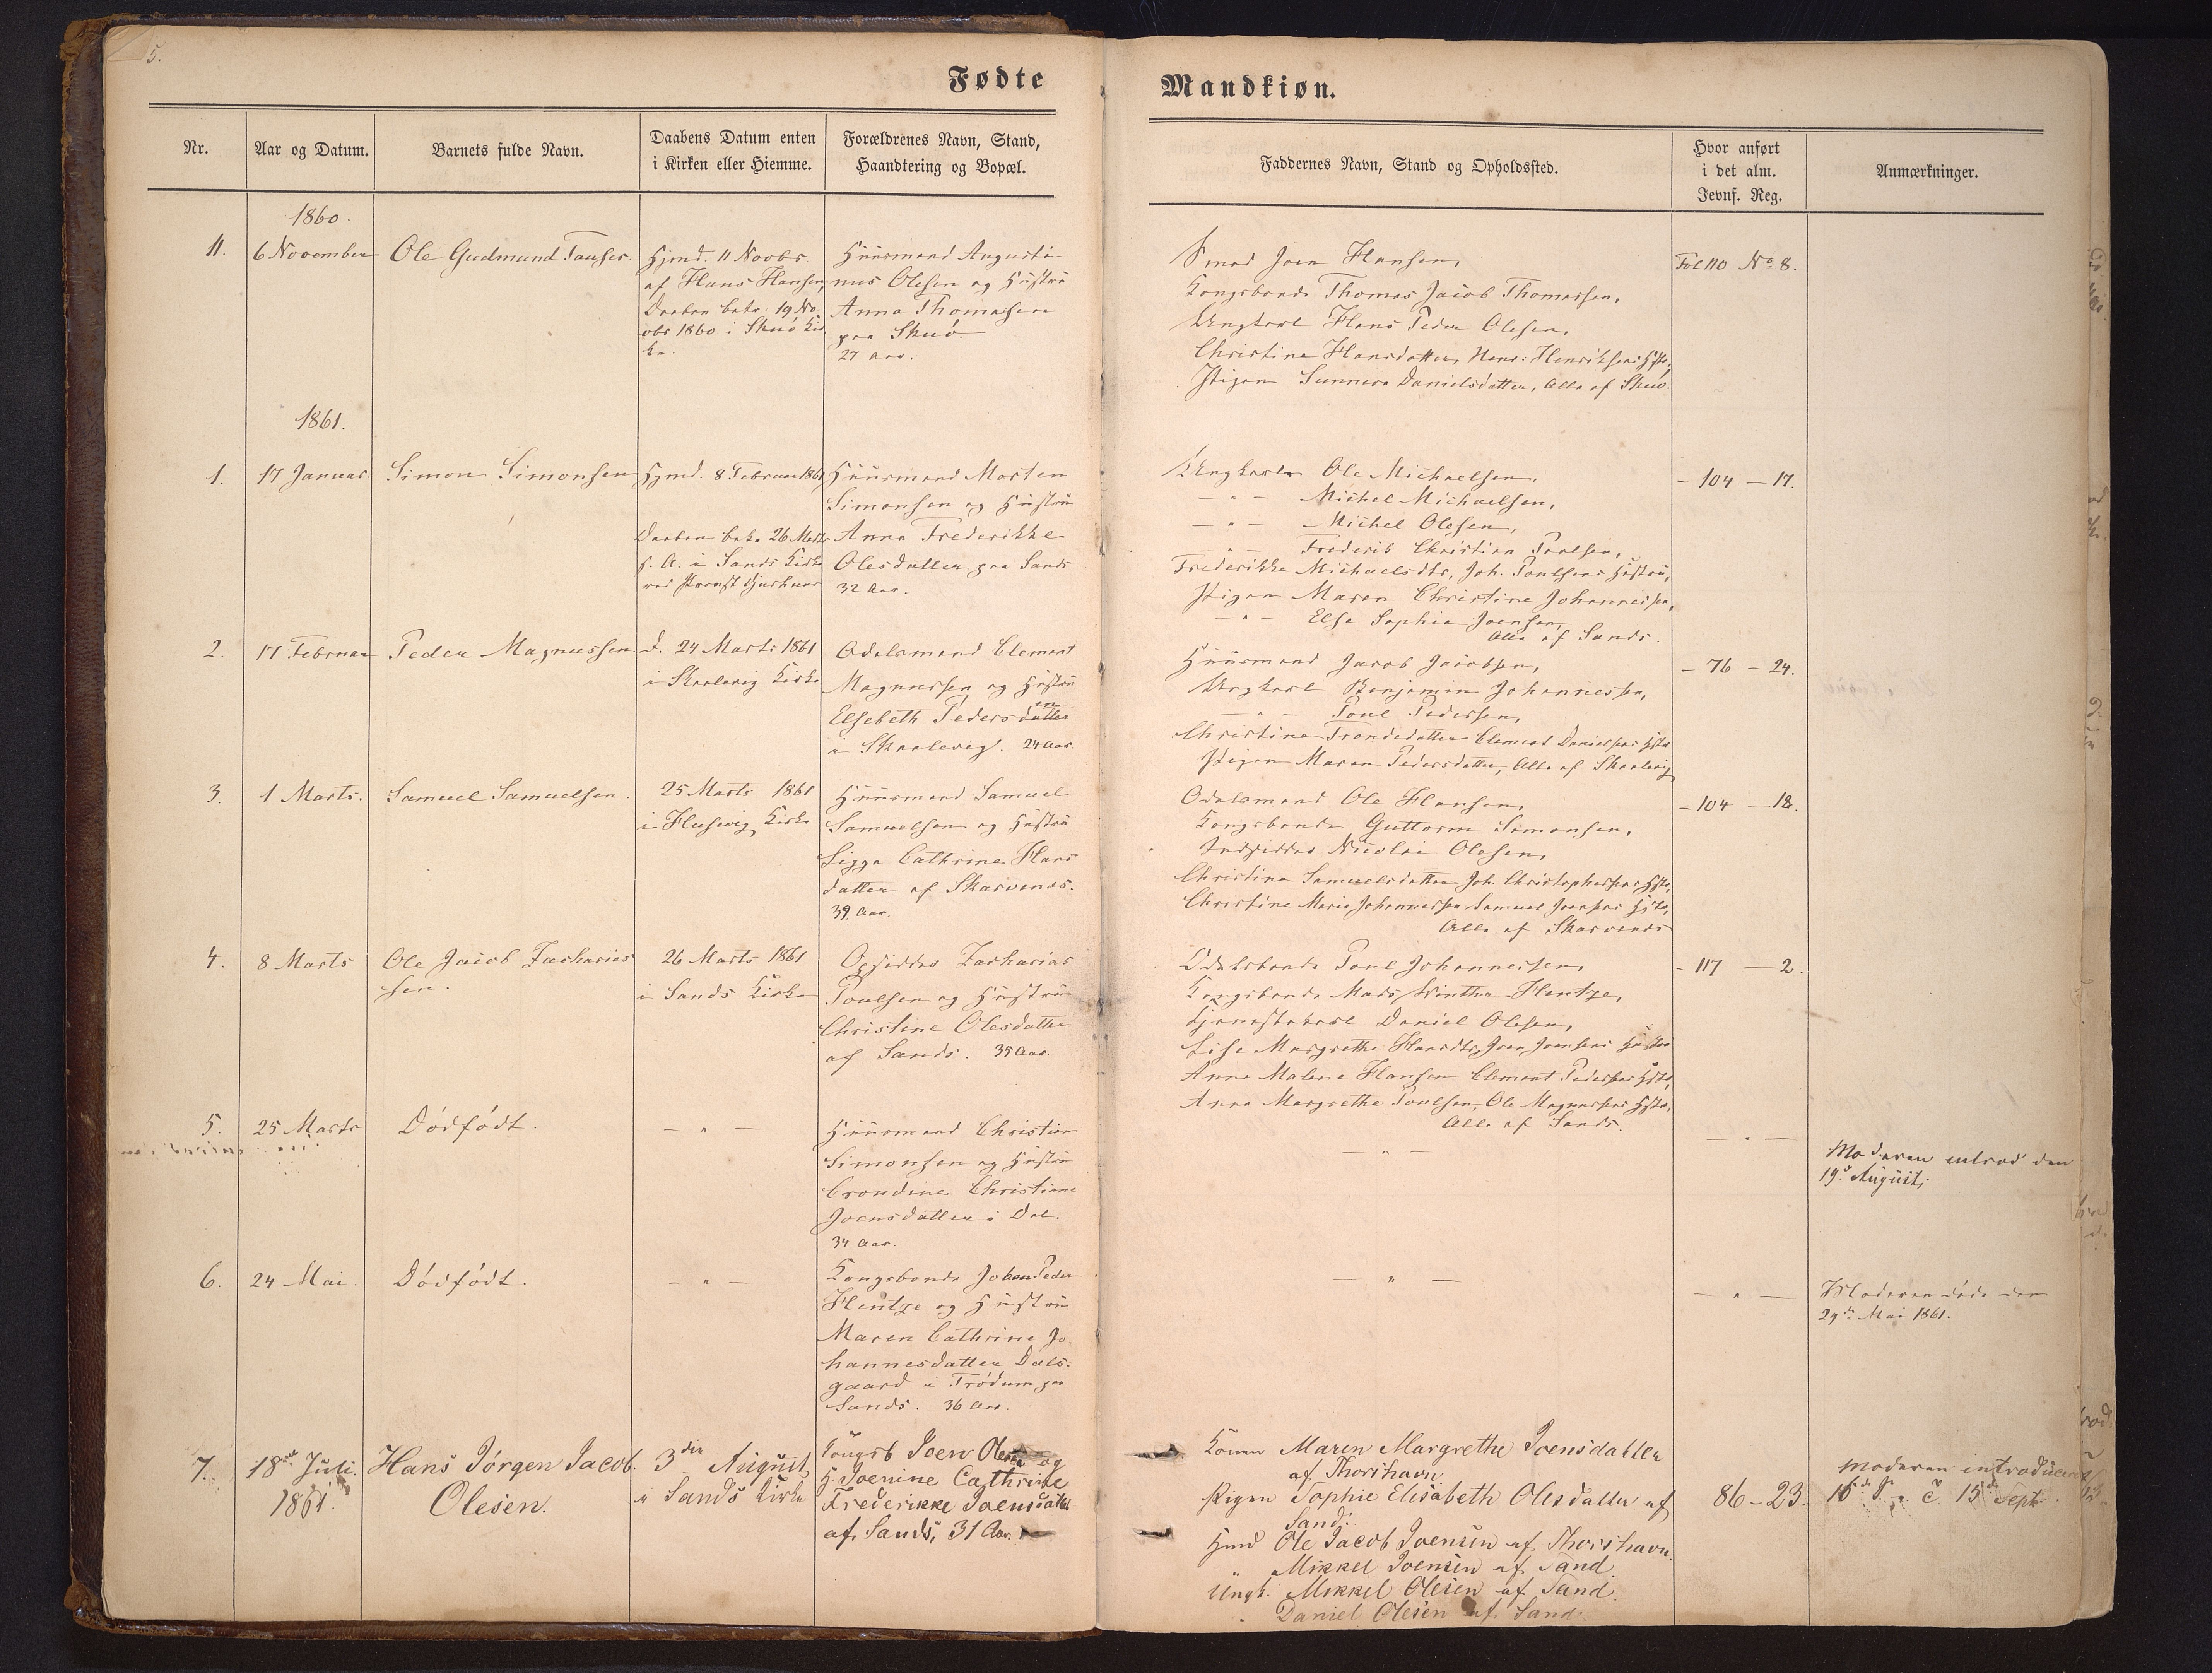 5.
Fødte
Mandkiøn.
Nr.
Aar og Datum.
Barnets fulde Navn.
Daabens Datum enten
i Kirken eller Hiemme.
Forældrenes Navn, Stand,
Haandtering og Bopæl.
Faddernes Navn, Stand og Opholdssted.
Hvor anført
i det alm.
Jevnf. Reg.
Anmærkninger.
1860.
11.
6 November
Ole Gudmund
Hjmd. 11 Novbr
af Hans Hansen,
Daaben bekr. 19 No
vbr 1860 i Skuø Kir
ke.
Huusmand Augusti-
nus Olesen og Hustru
Anna Thomasen
paa Skuø
27 Aar.
Joen Hansen,
Kongsbonde Thomas Jacob Thomassen,
Ungkarl Hans Peder Olesen,
Christine Hansdatter, Hans Henriksens Hstr,
Pigen Sunneva Danielsdatter, Alle af Skuø.
Fol 110 No 8.
1861.
1.
17 Januar.
Simon Simonsen
Hjmd. 8 Februar 1861
Daaben bekr. 26 Marts
s. A. i Sands Kirke
Huusmand Morten
Simonsen og Hustru
Anna Frederikke
Olesdatter paa Sands
32 Aar.
Ungkarl Ole Michaelsen,
— " — Michel Michaelsen,
— " — Michel Olesen,
— " — Frederik Christian Poulsen,
Frederikke Michaelsdtr, Joh. Poulsens Hustru,
Pigen Maren Christine Johannessen,
— " — Else Sophie Joensen,
Alle af Sands.
– 104 – 17.
2.
17 Februar
Peder Magnussen.
d. 24 Marts 1861
i Skaalevig Kirke
Odelsmand Clement
Magnussen og Hustru
Elsebeth Pedersdatter
i Skaalevig. 24 Aar.
Huusmand Jacob Jacobsen,
Ungkarl Benjamin Johannessen,
— " — Poul Pedersen,
Christine Trondsdatter Clement Danielsens Hstr
Pigen Maren Pedersdatter, Alle af Skaalevig
– 76 – 24.
3.
1 Marts.
Samuel Samuelsen.
25 Marts 1861
i Husevig Kirke
Huusmand Samuel
Samuelsen og Hustru
Sigga Cathrine Hans
datter af Skarvenæs.
39 Aar.
Odelsmand Ole Hansen,
Kongsbonde Guttorm Simonsen,
Indsidder Nicolai Olesen,
Christine Samuelsdatter Joh. Christophersens Hstr,
Christine Marie Johannessen Samuel Joensens Hstr,
Alle af Skarvenæs
– 104 – 18.
4.
8 Marts
Ole Jacob Zacharias
sen.
26 Marts 1861
i Sands Kirke
Opsidder Zacharias
Poulsen og Hustru
Christine Olesdatter
af Sands. 35 Aar.
Odelsbonde Poul Johannessen,
Kongsbonde Mads Winther Hentze,
Tjenestekarl Daniel Olesen,
Lise Margrethe Hansdtr, Joen Joensens Hustru
Anne Malene Hansen Clement Pedersens Hstr,
Anna Margrethe Poulsen, Ole Magnussens Hstr,
Alle af Sands.
– 117 – 2.
5.
25 Marts
Dødfødt.
— " —
Huusmand Christian
Simonsen og Hustru
Christiane
Joensdatter i Dal.
34 Aar.
— " —
— " —
Moderen introd den
19de August.
6.
24 Mai.
Dødfødt.
— " —
Kongsbonde Johan Peder
Hentze og Hustru
Maren Cathrine Jo
hannesdatter Dals-
gaard i Trødum paa
Sands. 36 Aar.
— " —
— " —
Moderen døde den
29de Mai 1861.
7.
18de Juli.
1861.
Hans Jørgen Jacob
Olesen.
3die August
i Sands Kirke
Kongsb Joen Olesen og
H. Joenine Cathrine
Frederikke Joensdatter
af Sands, 31 Aar.
Konen Maren Margrethe Joensdatter
af Thorshavn
Pigen Sophie Elisabeth Olesdatter af
Sand.
Hmd Ole Jacob Joensen af Thorshavn.
Mikkel Joensen af Sand.
Ungk. Mikkel Olesen af Sand.
Daniel Olesen af Sand.
86 – 23.
Moderen introduceret
15de Sept.